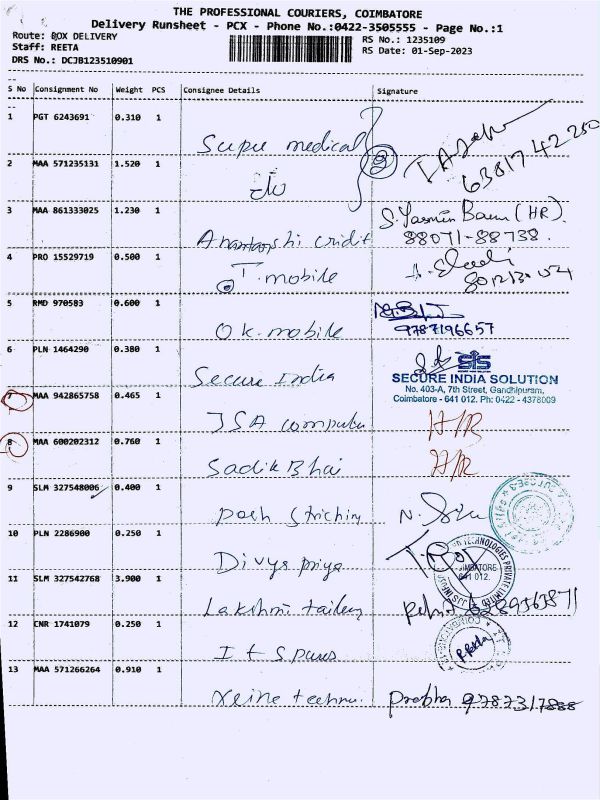 THE PROFESSIONAL COURIERS, COIMBATORE
Delivery Runsheet - PCX - Phone No.:0422-3505555 - Page No.:1
Route: BOX DELIVERY
Staff: REETA
DRS No.: DCJB123510901
RS No.: 1235109
RS Date: 01-Sep-2023
S No Consignment No Weight PCS Consignee Details Signature
1 PGT 6243691 0.310 1
medical
2 MAA 571235131 1.520 1
3 MAA 861333025 1.230 1 S. Yasmin Banu (HR).
88071-88738.
4 PRO 15529719 0.500 1
T. mobile
5 RMD 970583 0.600 1
OK. mobile 9787196657
6 PLN 1464290 0.380 1
Secure India
SIS
SECURE INDIA SOLUTION
No. 403-A, 7th Street, Gandhipuram,
Coimbatore - 641 012. Ph: 0422 - 4378009
7 MAA 942865758 0.465 1
JSA computer H/R
8 MAA 600202312 0.760 1
Sadik Bhai H/R
9 SLM 327548006 0.400 1
10 PLN 2286900 0.250 1
Divya priya
TECHNOLOGIES PRIVATE LIMITED
COIMBATORE
641 012.
11 SLM 327542768 3.900 1
Lakshmi
12 CNR 1741079 0.250 1
13 MAA 571266264 0.910 1
Prabha